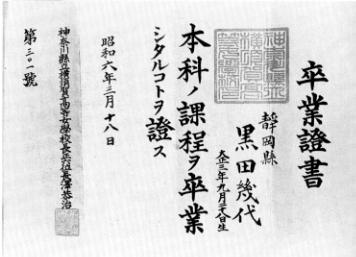 卒業證書
靜岡縣
黒田幾代
大正三年九月二十八日生
本科ノ課程ヲ卒業
シタルコトヲ證ス
昭和六年三月十八日
神奈川縣立横須賀高等女學校長
第三〇一號